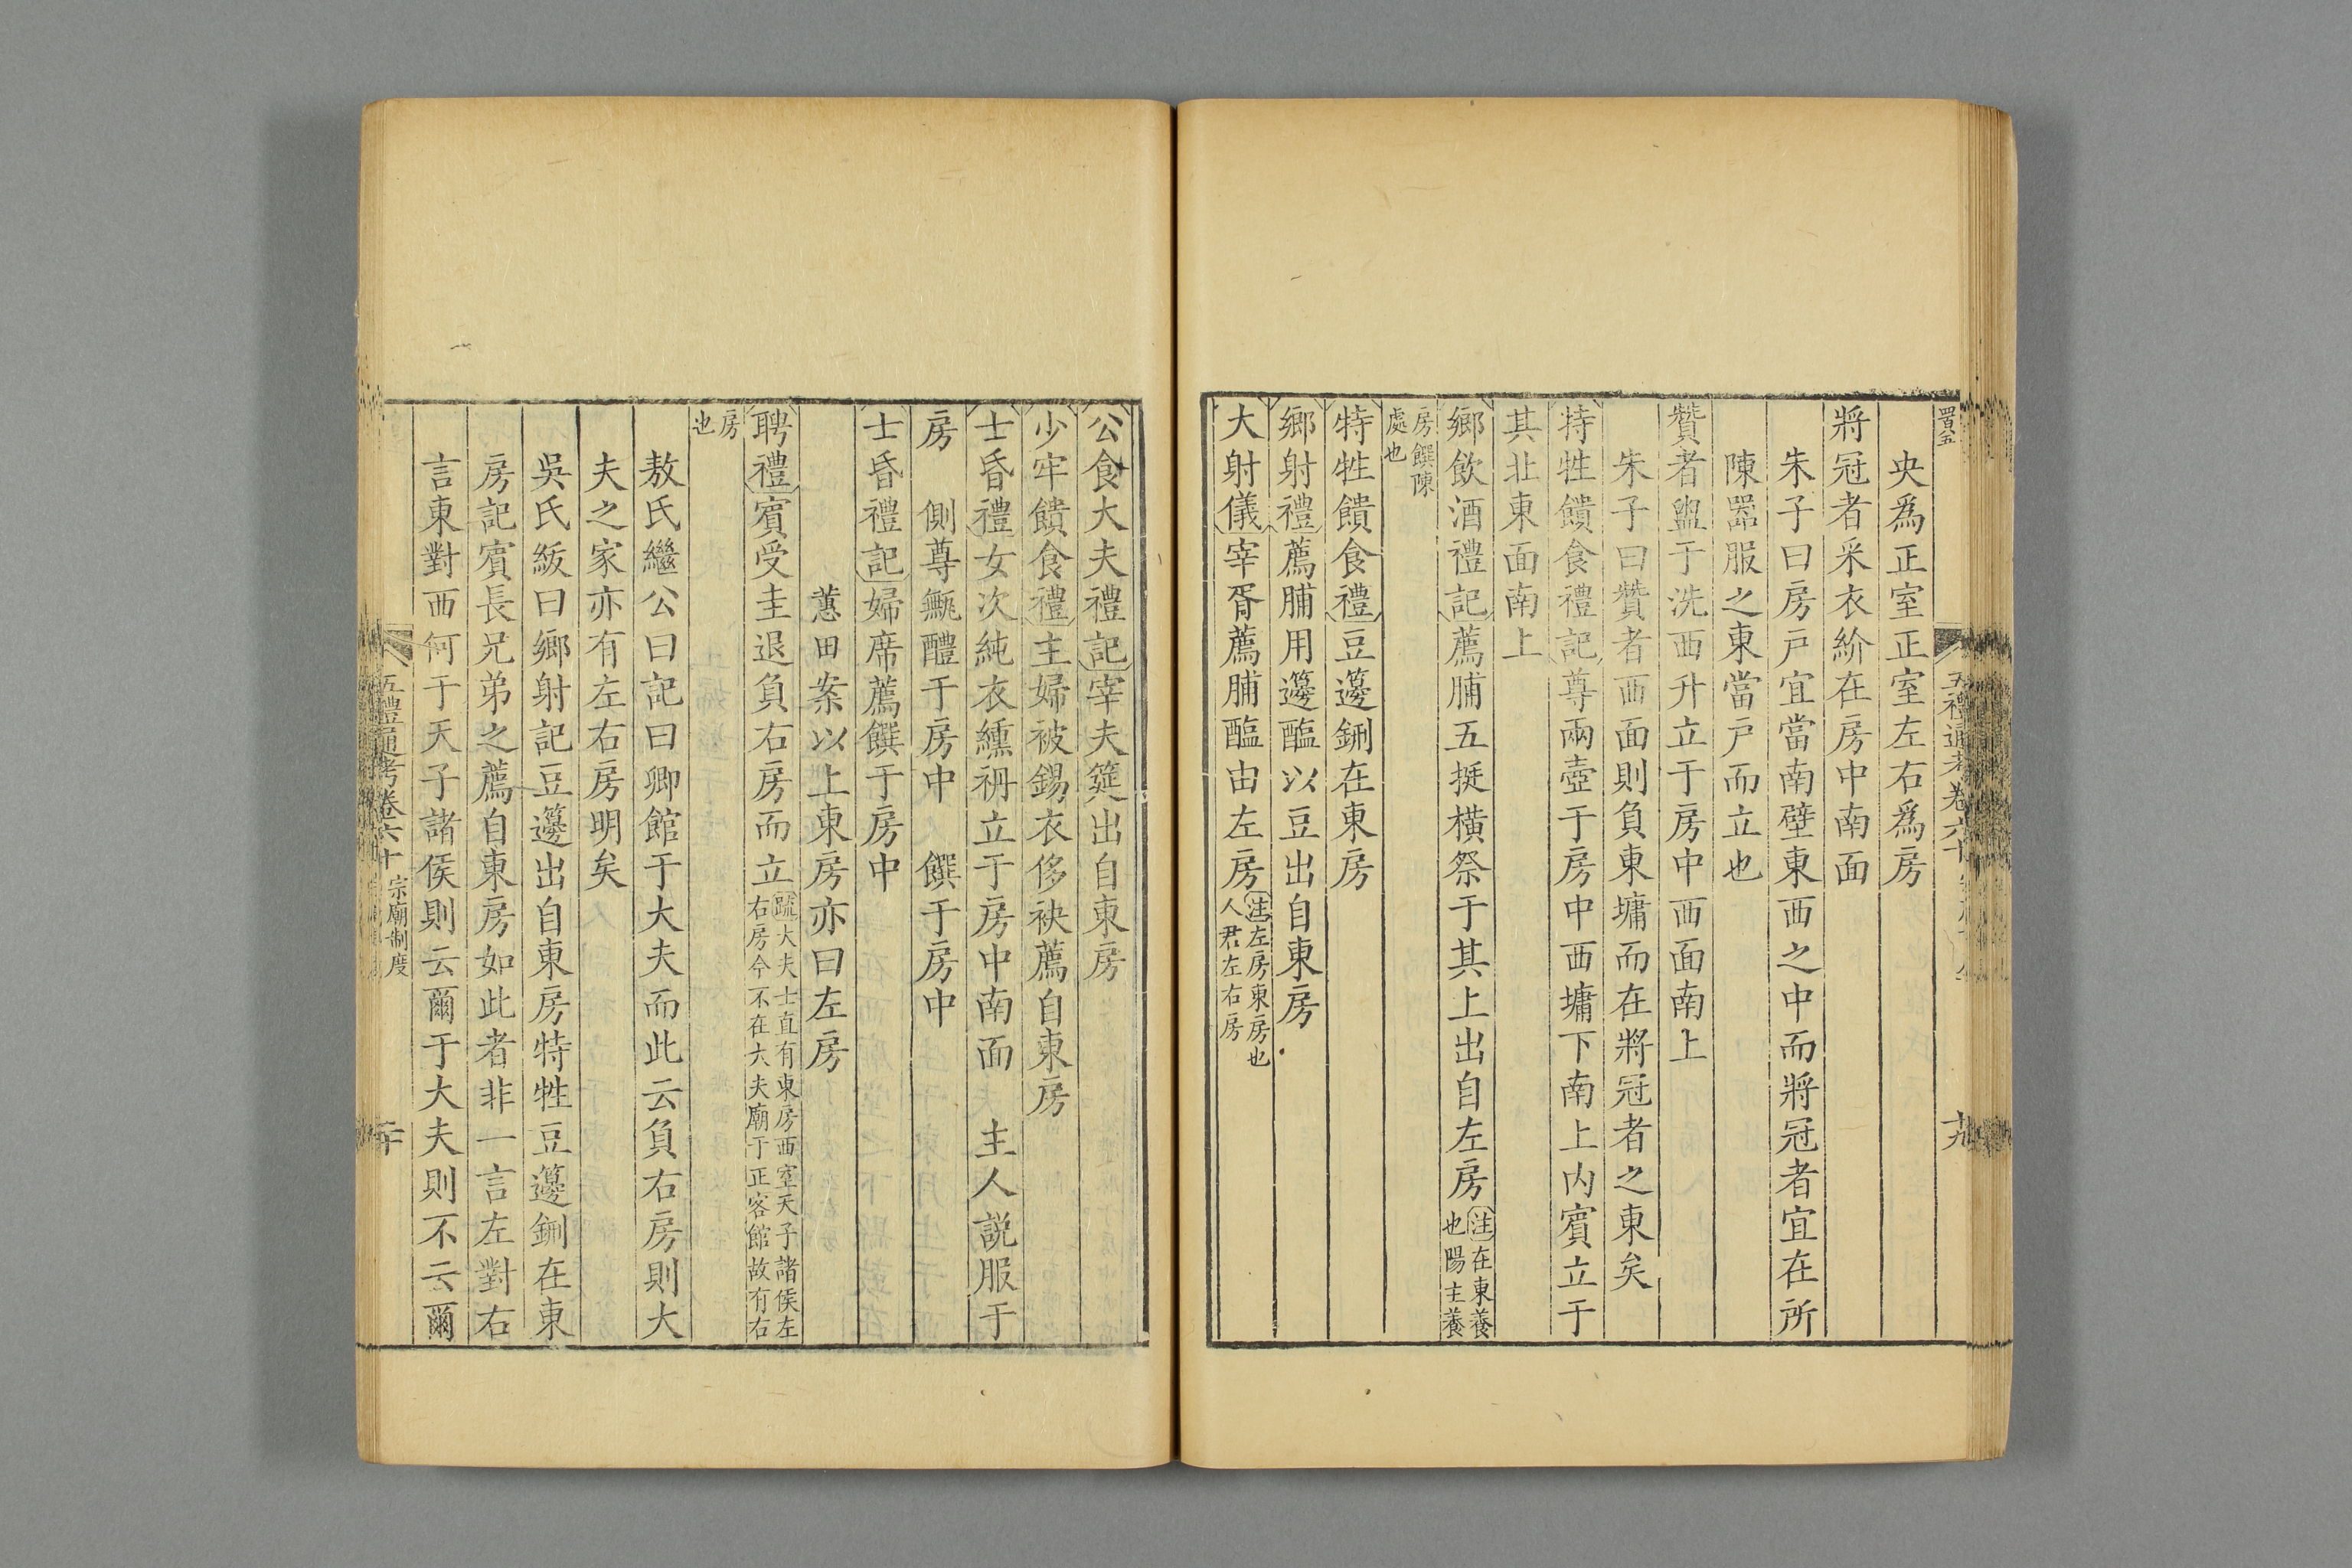 央爲正室正室左右爲房
將冠者采衣紒在房中南面
朱子曰房戶宜當南壁東西之中而將冠者宜在所
陳器服之東當戶而立也
贊者盥于洗西升立于房中西面南上
朱子曰贊者西面則負東墉而在將冠者之東矣
特牲饋食禮記尊兩壺于房中西墉下南上内賓立于
其北東面南上
鄉飲酒禮記薦脯五挺橫祭于其上出自左房注在東養
也陽主養
房饌陳
處也
特牲饋食禮豆籩鉶在東房
鄉射禮薦脯用籩醢以豆出自東房
大射儀宰胥薦脯醢由左房注左房東房也
人君左右房
五禮通考卷六十
十九
公食大夫禮記宰夫筵出自東房
少牢饋食禮主婦被錫衣侈袂薦自東房
士昏禮女次純衣纁袡立于房中南面　主人說服于
房　側尊甒醴于房中　饌于房中
士昏禮記婦席薦饌于房中
蕙田案以上東房亦曰左房
聘禮賓受圭退負右房而立疏大夫士直有東房西室天子諸侯左
右房今不在大夫廟于正客館故有右
房
也
敖氏繼公曰記曰卿館于大夫而此云負右房則大
夫之家亦有左右房明矣
吳氏紱曰鄉射記豆籩出自東房特牲豆籩鉶在東
房記賓長兄弟之薦自東房如此者非一言左對右
言東對西何于天子諸侯則云爾于大夫則不云爾
五禮通考卷六十 宗廟制度
二十